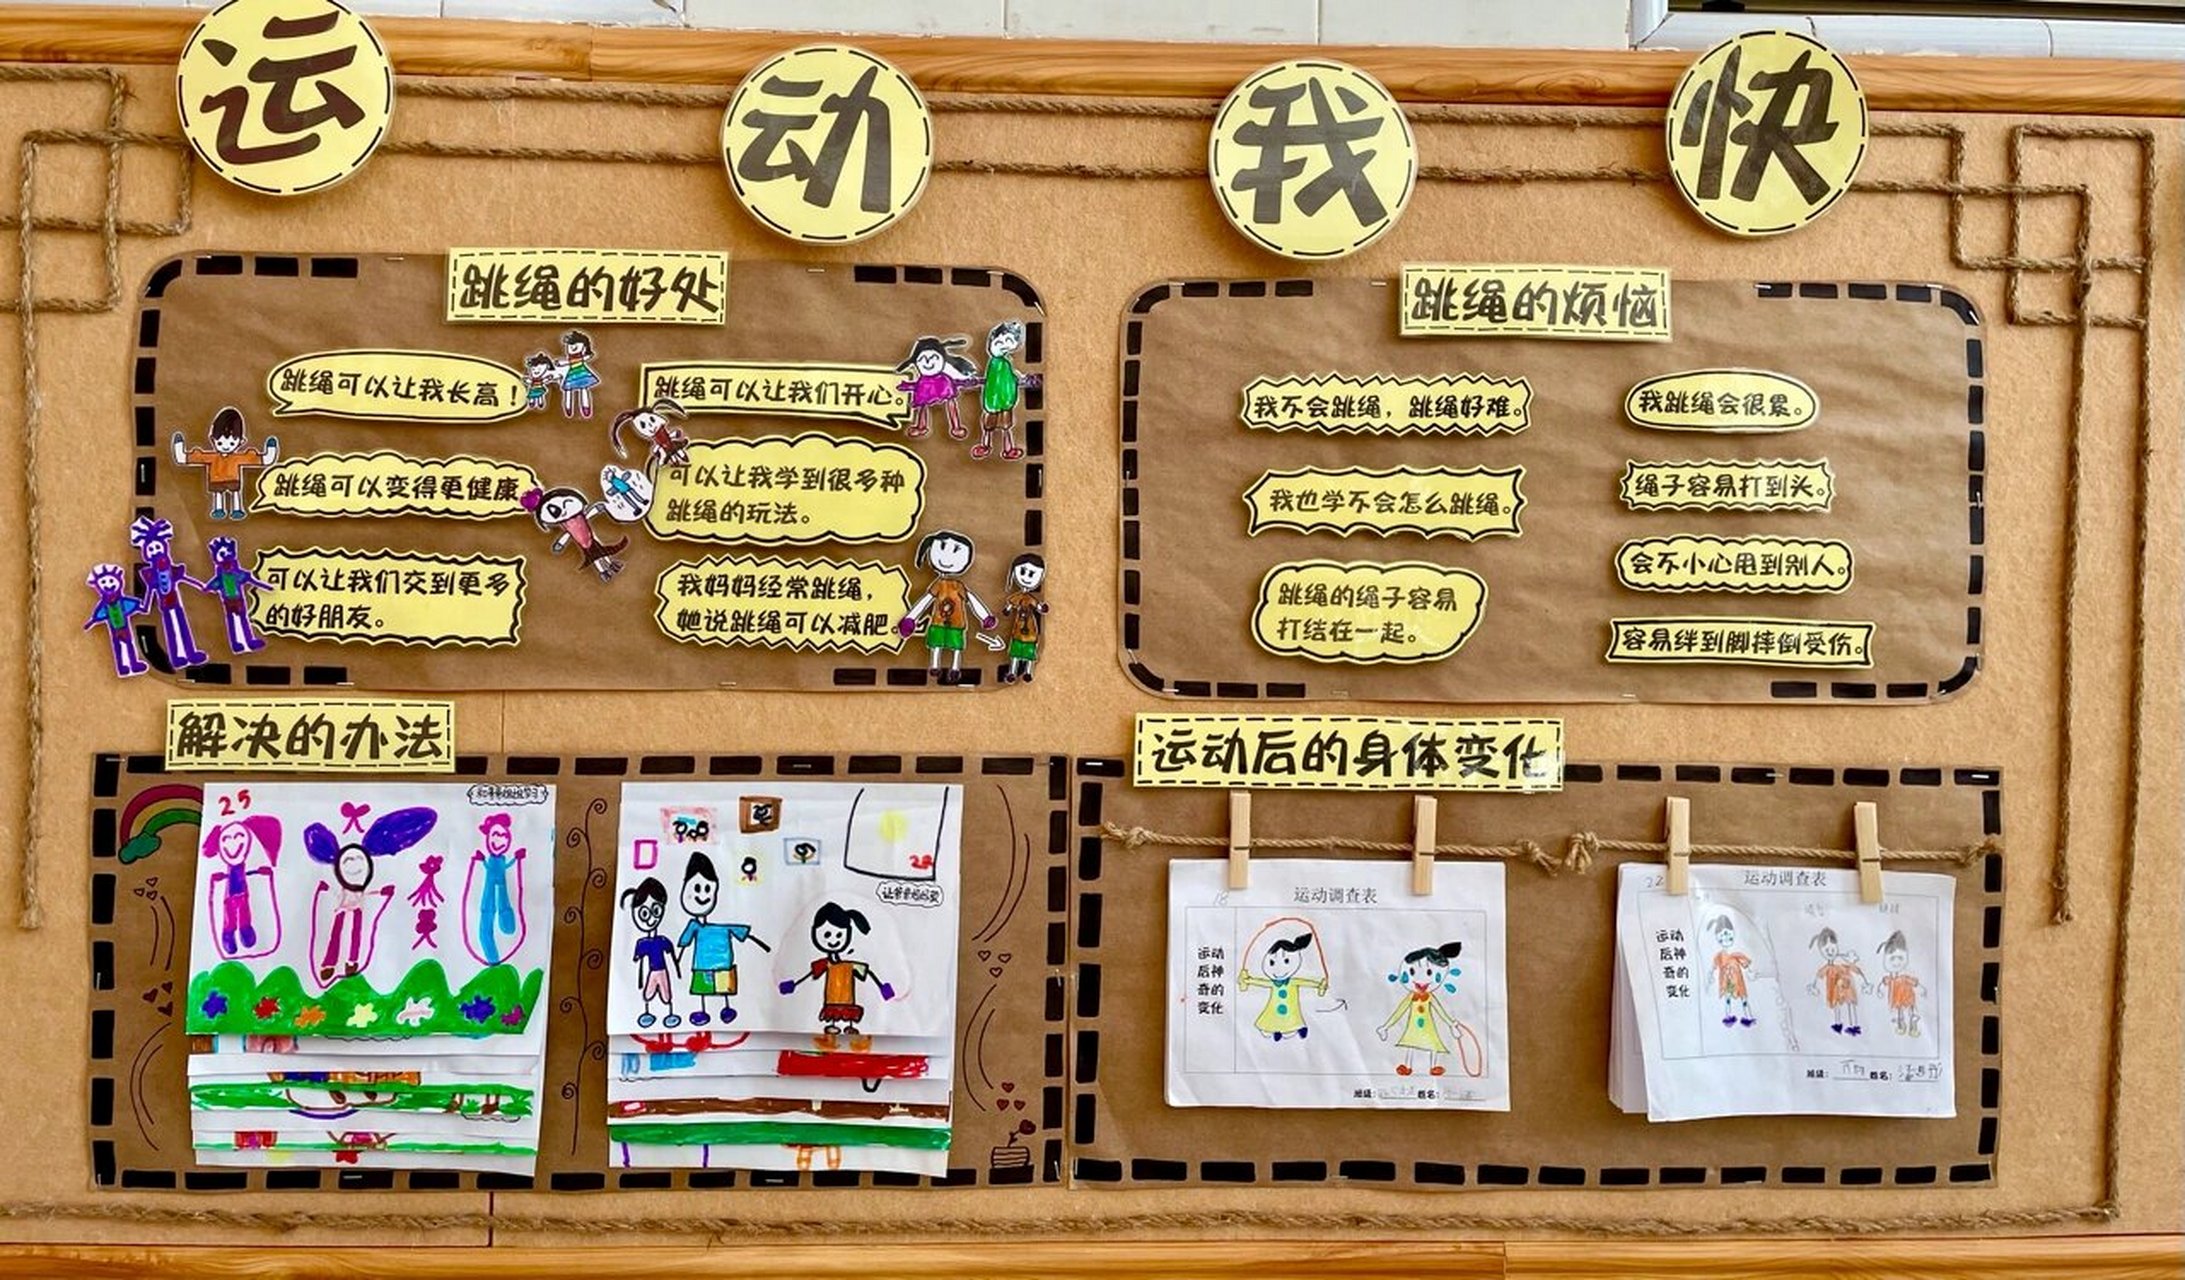 运动我快
跳绳的好处
跳绳可以让我长高！
跳绳可以让我们开心。
跳绳可以变得更健康
可以让我学到很多种
跳绳的玩法。
可以让我们交到更多
的好朋友。
我妈妈经常跳绳，
她说跳绳可以减肥。
跳绳的烦恼
我不会跳绳，跳绳好难。
我跳绳会很累。
我也学不会怎么跳绳。
绳子容易打到头。
跳绳的绳子容易
打结在一起。
会不小心甩到别人。
容易绊到脚摔倒受伤。
解决的办法
25
28
运动后的身体变化
18
运动调查表
运动
后神
奇的
变化
班级：
姓名：
22
运动调查表
运动
后神
奇的
变化
班级：
姓名：